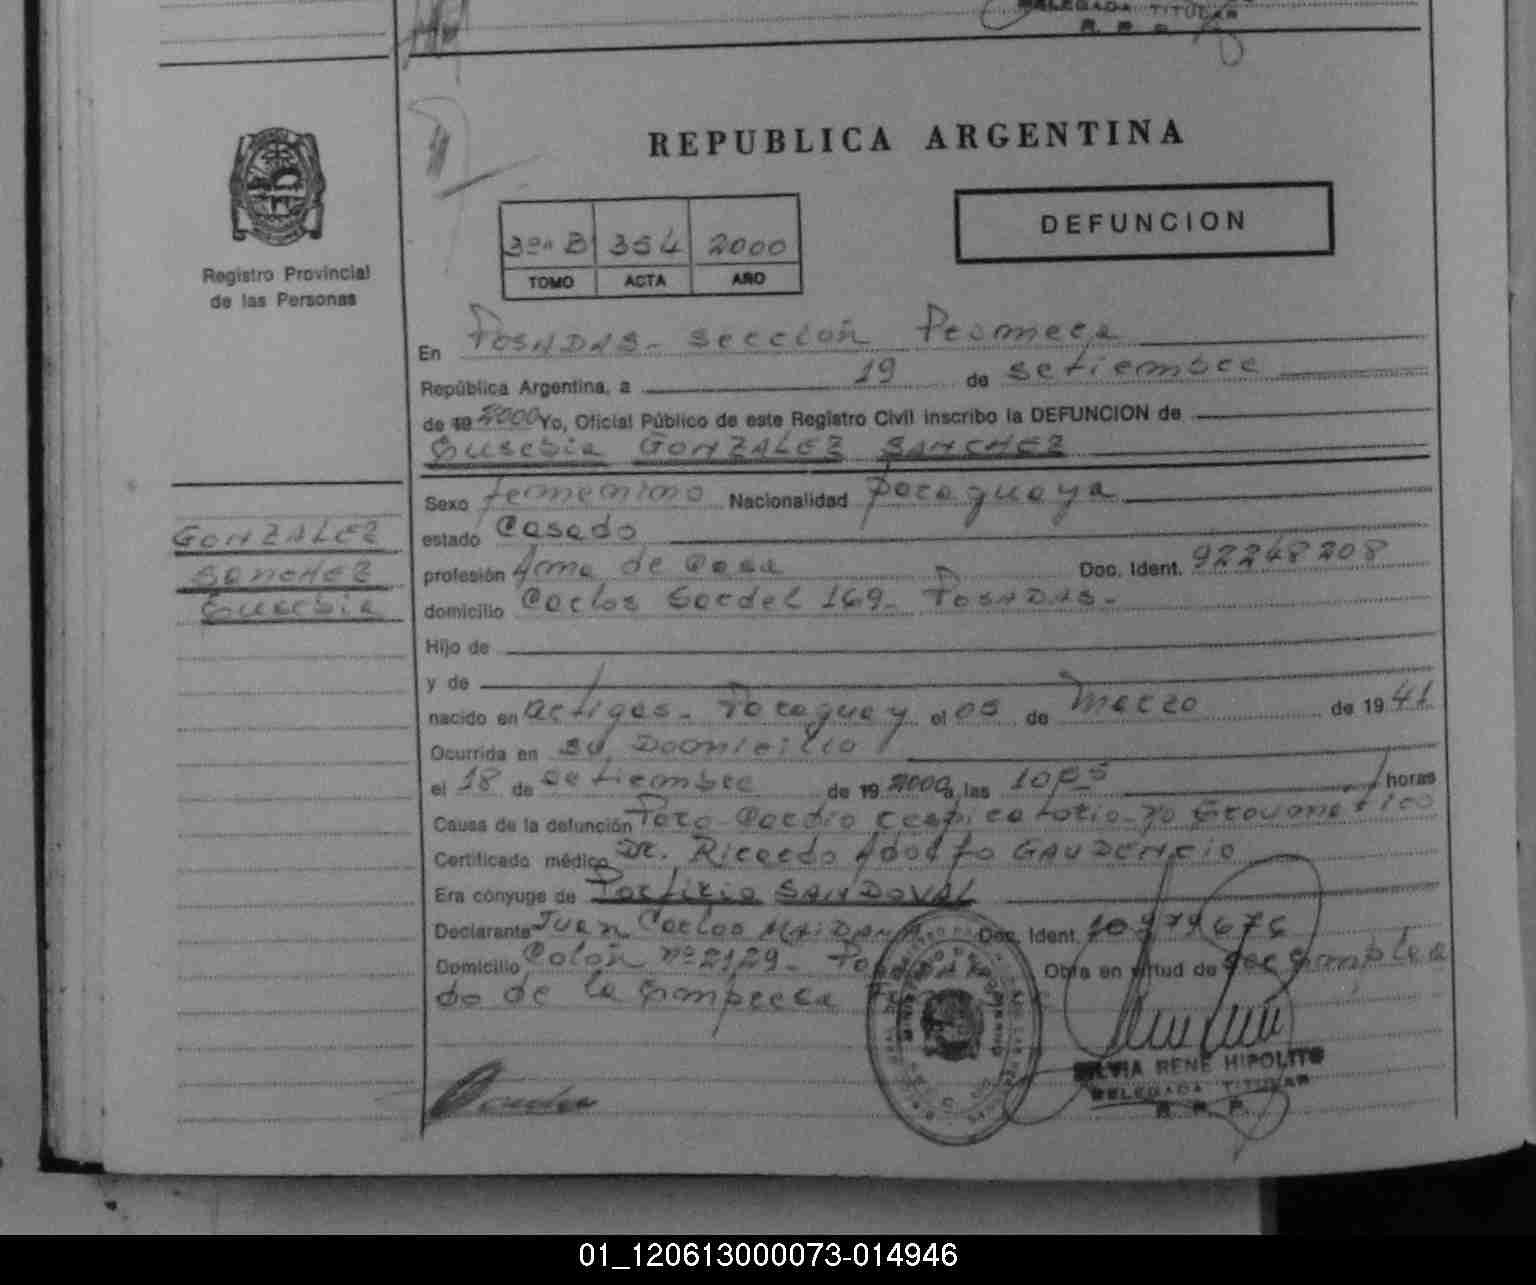 DELEGADA TITULAR
R. P. P.
REPUBLICA ARGENTINA
DEFUNCION
Registro Provincial
de las Personas
B 354 2000
TOMO ACTA AÑO
En POSADAS - sección Primera
República Argentina, a 19 de setiembre
de 19 2000 Yo, Oficial Público de este Registro Civil inscribo la DEFUNCION de
Eusebia GONZALEZ SANCHEZ
GONZALEZ
SANCHEZ
Eusebia
Sexo femenino Nacionalidad paraguaya
estado Casada
profesión Ama de Casa Doc. Ident. 92248208
domicilio Carlos Gardel 169 - POSADAS -
Hijo de
y de
nacido en Artigas - Paraguay el 05 de Marzo de 19 41
Ocurrida en su Domicilio
el 18 de setiembre de 19 2000 a las 10 horas
Causa de la defunción Paro Cardio respiratorio no traumatico
Certificado médico Dr. Ricardo Adolfo GAUDENCIO
Era cónyuge de Porfirio SANDOVAL
Declarante Juan Carlos MAIDANA Doc. Ident. 10979676
Domicilio Colón nº 2129 - Obra en virtud de ser Emplea
do de la Empresa
SILVIA RENE HIPOLITO
DELEGADA TITULAR
R. P. P.
01_120613000073-014946